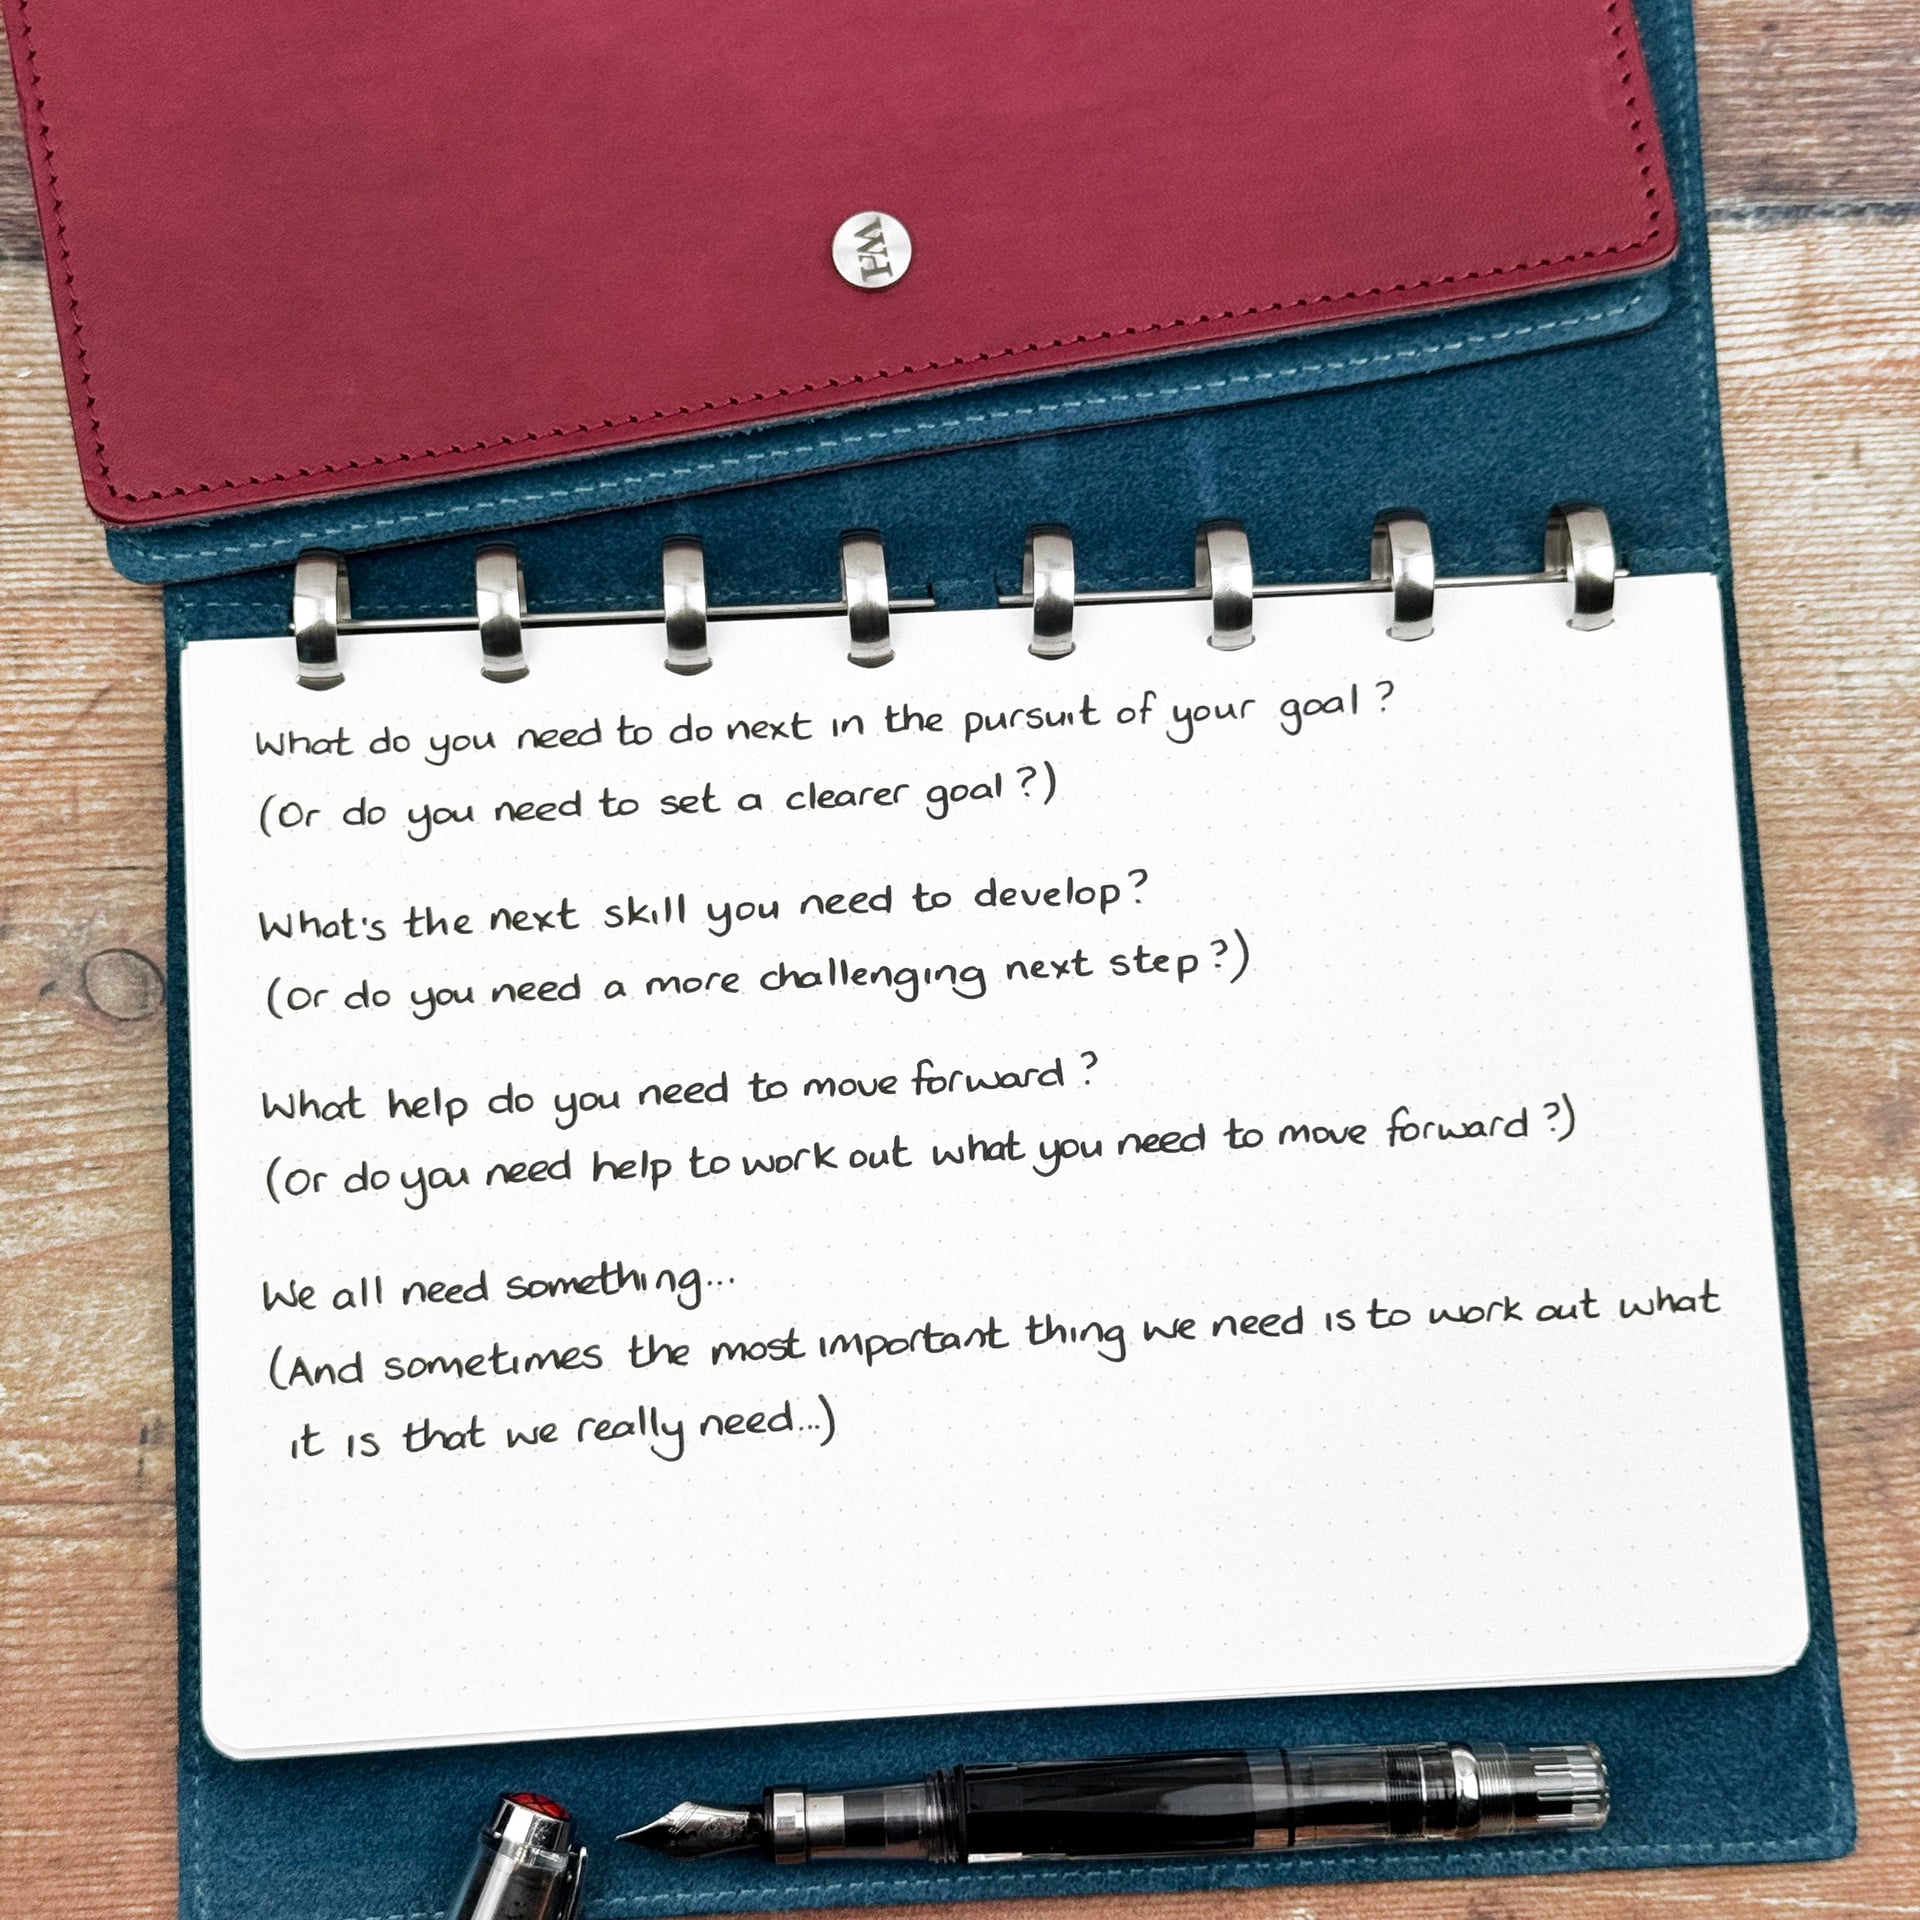 WH
What do you need to do next in the pursuit of your goal?
(Or do you need to set a clearer goal?)
What's the next skill you need to develop?
(Or do you need a more challenging next step?)
What help do you need to move forward?
(Or do you need help to work out what you need to move forward?)
We all need something...
(And sometimes the most important thing we need is to work out what
it is that we really need...)